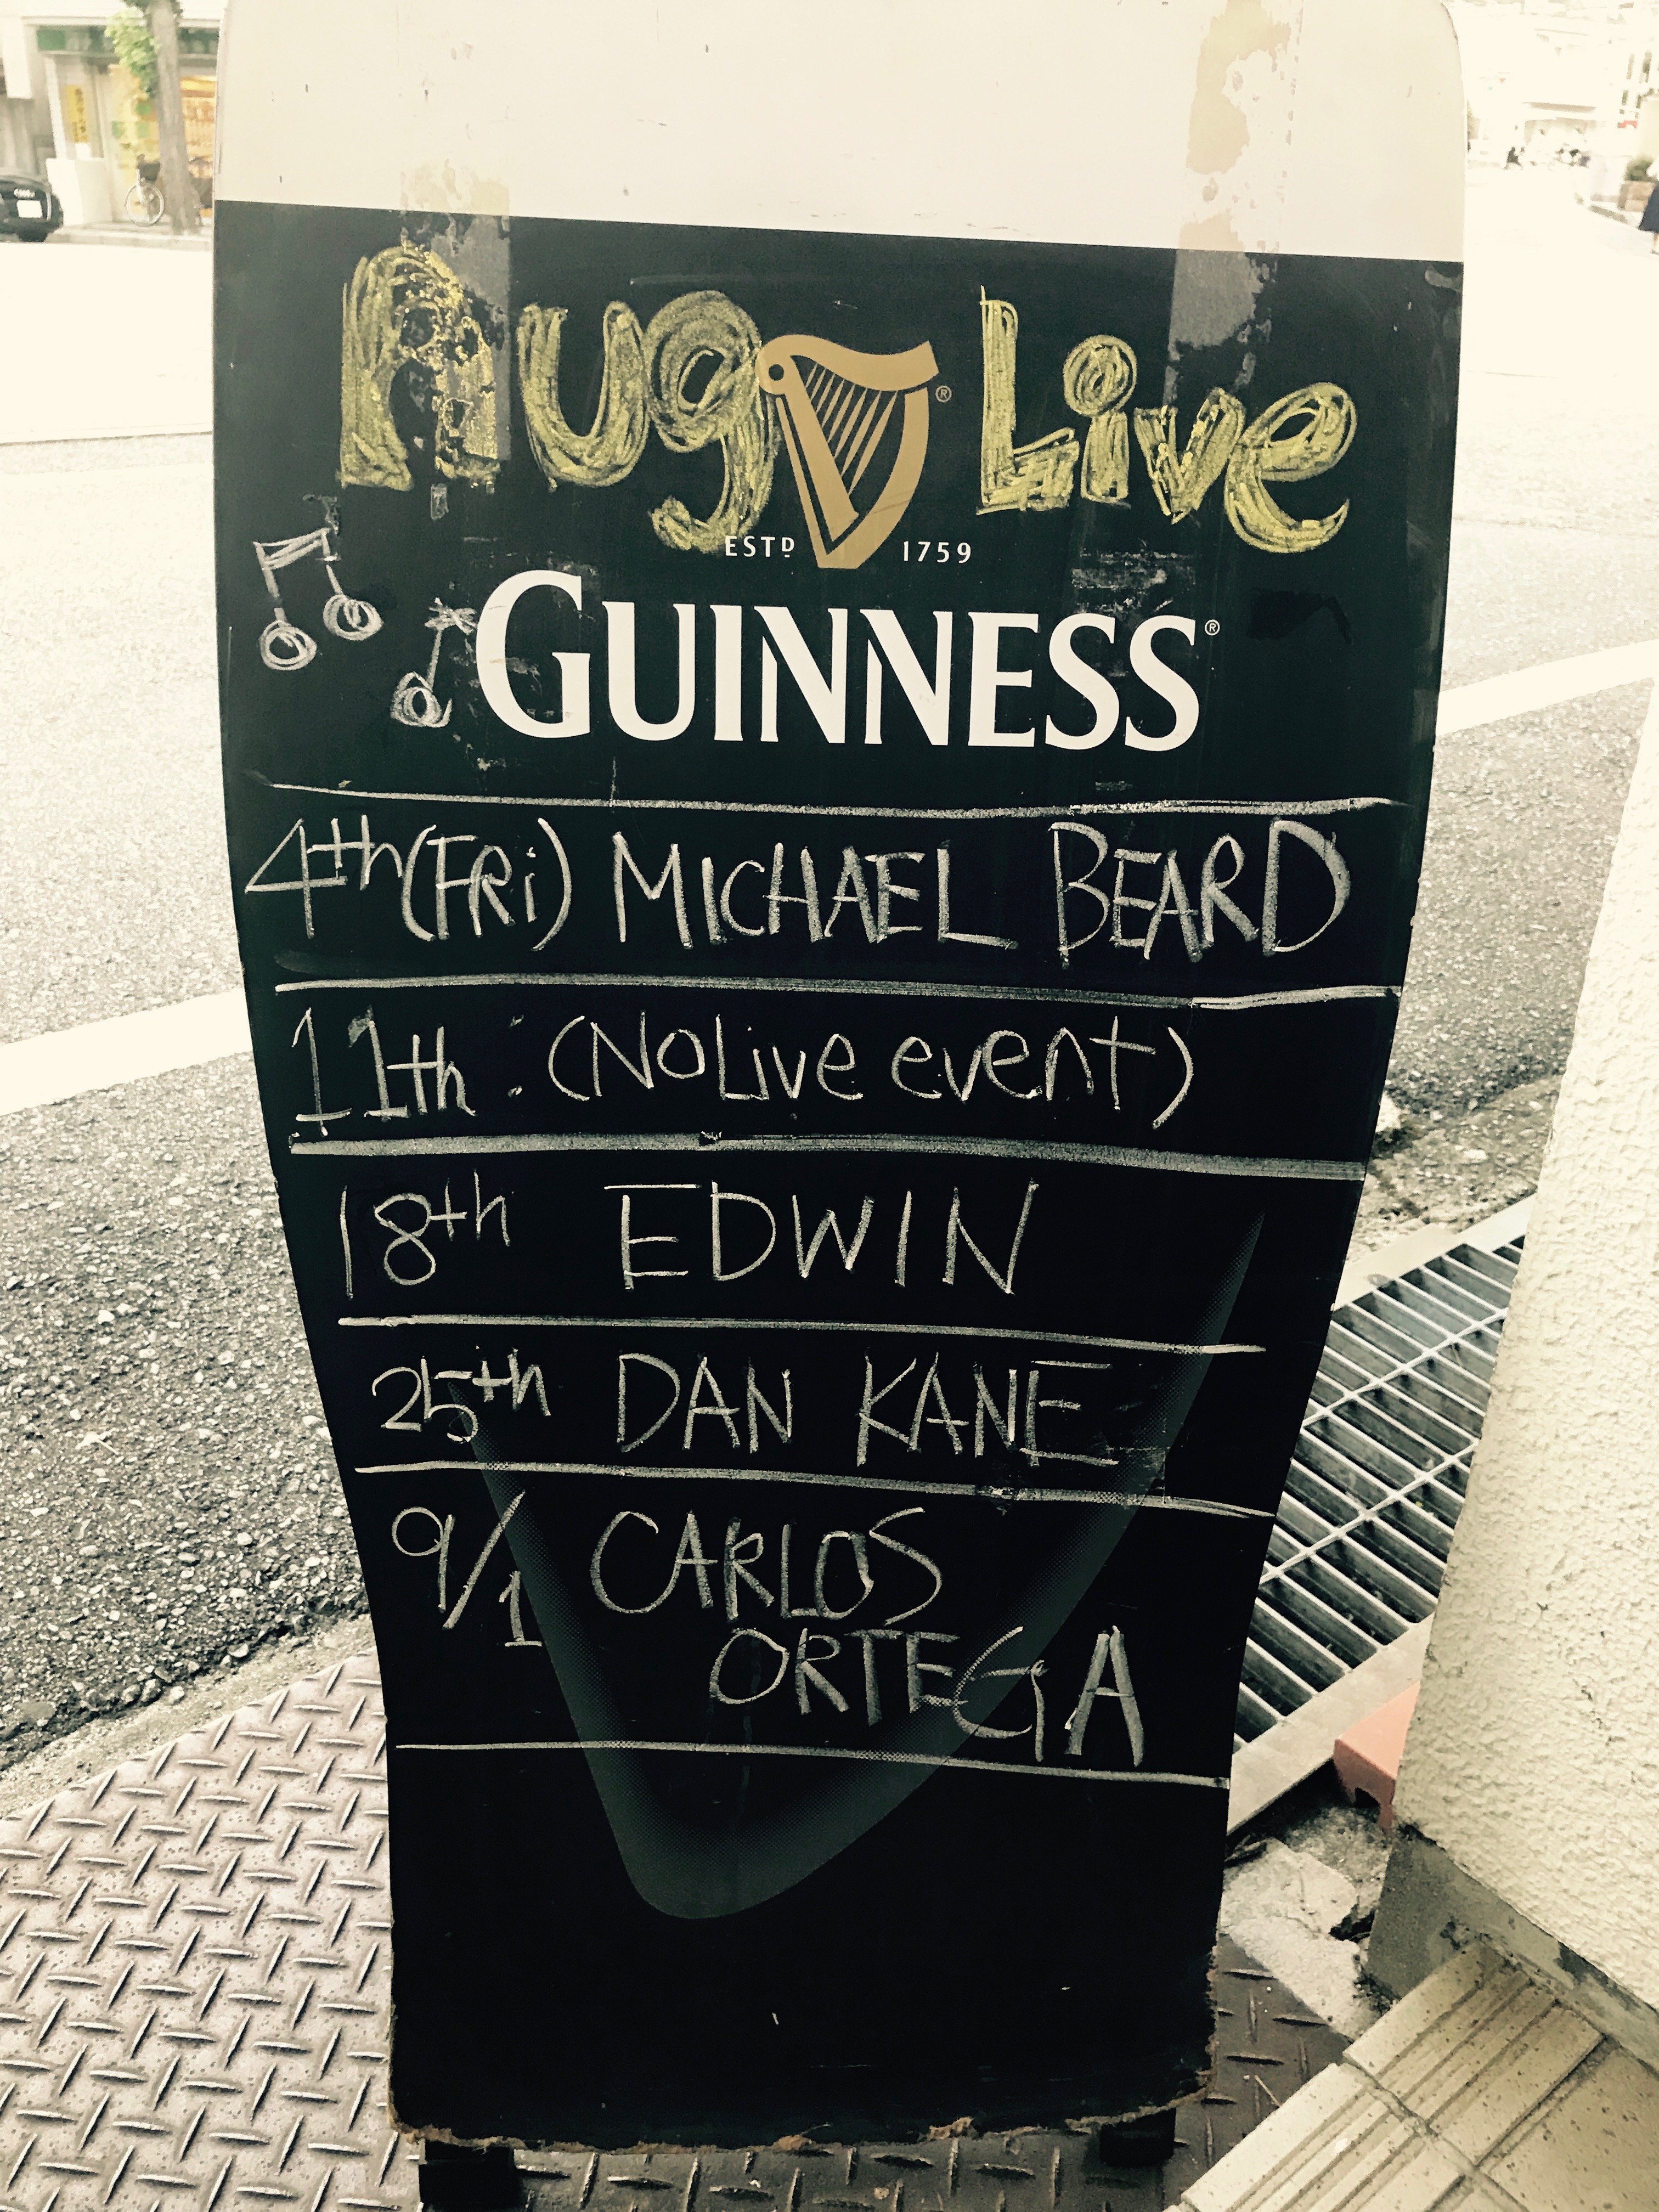 Aug Live
ESTD 1759
GUINNESS®
4th (FRi) MICHAEL BEARD
11th : (No Live event)
18th EDWIN
25th DAN KANE
9/1 CARLOS
ORTEGA